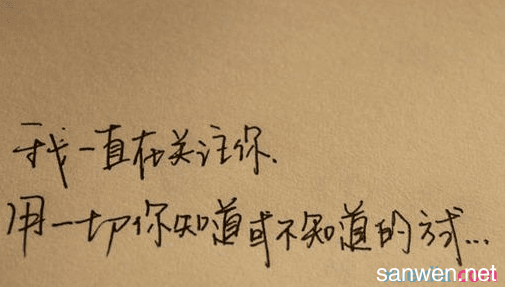 我一直在关注你.
用一切你知道或不知道的方式...
sanwen.net